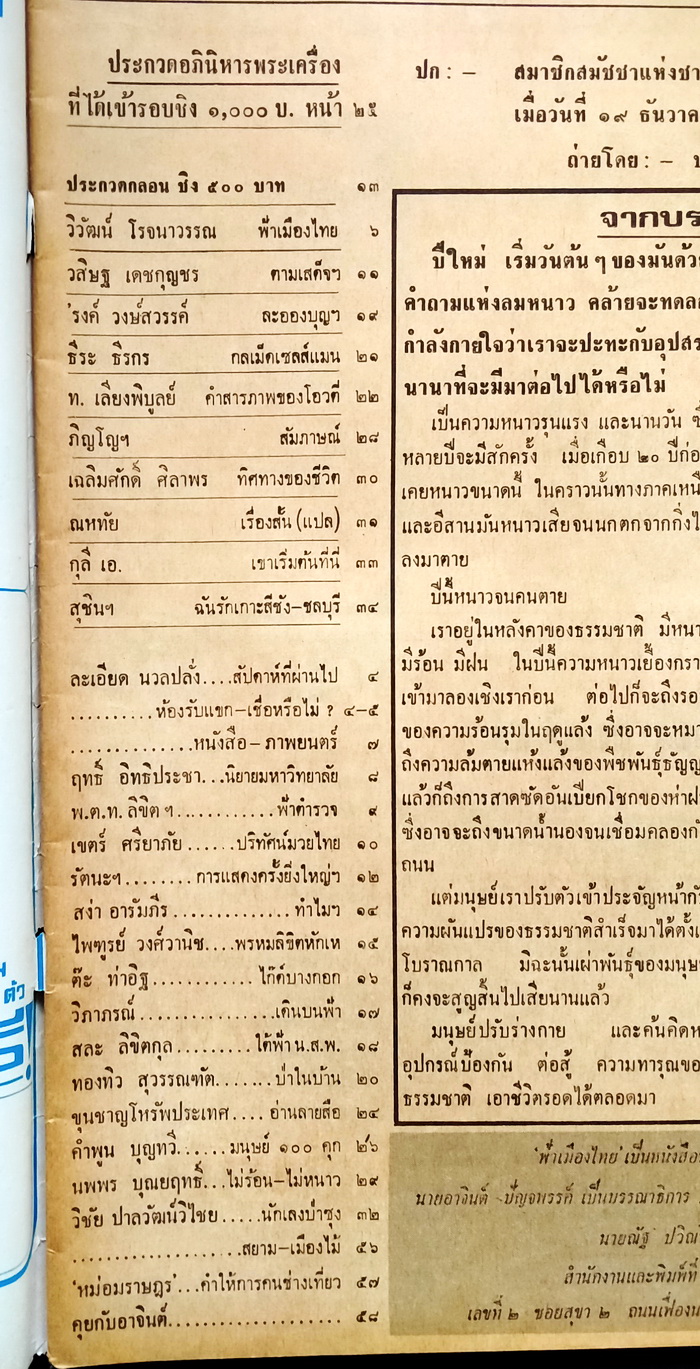 ประกวดอภินิหารพระเครื่อง
ที่ได้เข้ารอบชิง ๑,๐๐๐ บ. หน้า ๒๕
ประกวดกลอน ชิง ๕๐๐ บาท ๑๓
วิวัฒน์ โรจนาวรรณ ฟ้าเมืองไทย ๖
วสิษฐ เดชกุญชร ตามเสด็จฯ ๑๑
'รงค์ วงษ์สวรรค์ ละอองบุญฯ ๑๙
ธีระ ธิรกร กลเม็ดเซลส์แมน ๒๑
ท. เลียงพิบูลย์ คำสารภาพของโอวตี่ ๒๒
ภิญโญฯ สัมภาษณ์ ๒๘
เฉลิมศักดิ์ ศิลาพร ทิศทางของชีวิต ๓๐
ณหทัย เรื่องสั้น (แปล) ๓๑
กุลี เอ. เขาเริ่มต้นที่นี่ ๓๓
สุชินฯ ฉันรักเกาะสีชัง-ชลบุรี ๓๔
ละเอียด นวลปลั่ง....สัปดาห์ที่ผ่านไป ๔
..........ห้องรับแขก-เชื่อหรือไม่ ? ๔-๕
..............หนังสือ-ภาพยนตร์ ๗
ฤทธิ์ อิทธิประชา...นิยายมหาวิทยาลัย ๘
พ.ต.ท. ลิขิต ฯ...........ฟ้าตำรวจ ๙
เขตร์ ศรียาภัย......ปริทัศน์มวยไทย ๑๐
รัตนะฯ........การแสดงครั้งยิ่งใหญ่ฯ ๑๒
สง่า อารัมภีร..............ทำไมฯ ๑๔
ไพฑูรย์ วงศ์วานิช....พรหมลิขิตหักเห ๑๕
ต๊ะ ท่าอิฐ............ไก๊ด์บางกอก ๑๖
วิภาภรณ์................เดินบนฟ้า ๑๗
สละ ลิขิตกุล.........ใต้ฟ้า น.ส.พ. ๑๘
ทองทิว สุวรรณทัต.......ป่าในบ้าน ๒๐
ขุนชาญโหรัพประเทศ.... อ่านลายสือ ๒๔
คำพูน บุญทวี......มนุษย์ ๑๐๐ คุก ๒๖
นพพร บุณยฤทธิ์...ไม่ร้อน-ไม่หนาว ๒๙
วิชัย ปาลวัฒน์วิไชย.....นักเลงป่าซุง ๓๒
....................สยาม-เมืองไม้ ๕๖
'หม่อมราษฎร'...คำให้การคนช่างเที่ยว ๕๗
คุยกับอาจินต์.................... ๕๘
ปก : - สมาชิกสมัชชาแห่งชา
เมื่อวันที่ ๑๙ ธันวาค
ถ่ายโดย : -
จากบร
ปีใหม่ เริ่มวันต้น ๆ ของมันด้วย
คำถามแห่งลมหนาว คล้ายจะทดล
กำลังกายใจว่าเราจะปะทะกับอุปส
นานาที่จะมีมาต่อไปได้หรือไม่
เป็นความหนาวรุนแรง และนานวัน ซึ
หลายปีจะมีสักครั้ง เมื่อเกือบ ๒๐ ปีก่อ
เคยหนาวขนาดนี้ ในคราวนั้นทางภาคเหนื
และอีสานมันหนาวเสียจนนกตกจากกิ่งไ
ลงมาตาย
ปีนี้หนาวจนคนตาย
เราอยู่ในหลังคาของธรรมชาติ มีหนา
มีร้อน มีฝน ในปีนี้ความหนาวเยื้องกรา
เข้ามาลองเชิงเราก่อน ต่อไปก็จะถึงรอ
ของความร้อนรุมในฤดูแล้ง ซึ่งอาจจะหมา
ถึงความล้มตายแห้งแล้งของพืชพันธุ์ธัญญ
แล้วก็ถึงการสาดซัดอันเปียกโชกของห่าฝ
ซึ่งอาจจะถึงขนาดน้ำนองจนเชื่อมคลองกั
ถนน
แต่มนุษย์เราปรับตัวเข้าประจัญหน้ากั
ความผันแปรของธรรมชาติสำเร็จมาได้ตั้งแ
โบราณกาล มิฉะนั้นเผ่าพันธุ์ของมนุษ
ก็คงจะสูญสิ้นไปเสียนานแล้ว
มนุษย์ปรับร่างกาย และค้นคิดห
อุปกรณ์ป้องกัน ต่อสู้ ความทารุณขอ
ธรรมชาติ เอาชีวิตรอดได้ตลอดมา
'ฟ้าเมืองไทย' เป็นหนังสือ
นายอาจินต์ ปัญจพรรค์ เป็นบรรณาธิการ
นายณัฐ ปวิณ
สำนักงานและพิมพ์ที่
เลขที่ ๒ ซอยสุขา ๒ ถนนเฟื่องน
ตัว